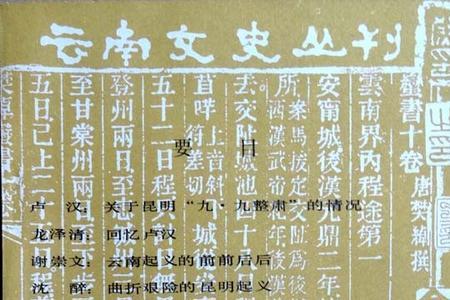 云南文史丛刊
要目
卢汉：关于昆明“九·九整肃”的情况
龙泽清：回忆卢汉
谢崇文：云南起义的前前后后
沈醉：曲折艰险的昆明起义
蠻書十卷 唐樊綽撰
雲南界內程途第一
安甯城後漢元鼎二年
去交阯城池四十
苴咩
五十二日程
登州兩日至
至甘棠州兩日
五日已上二